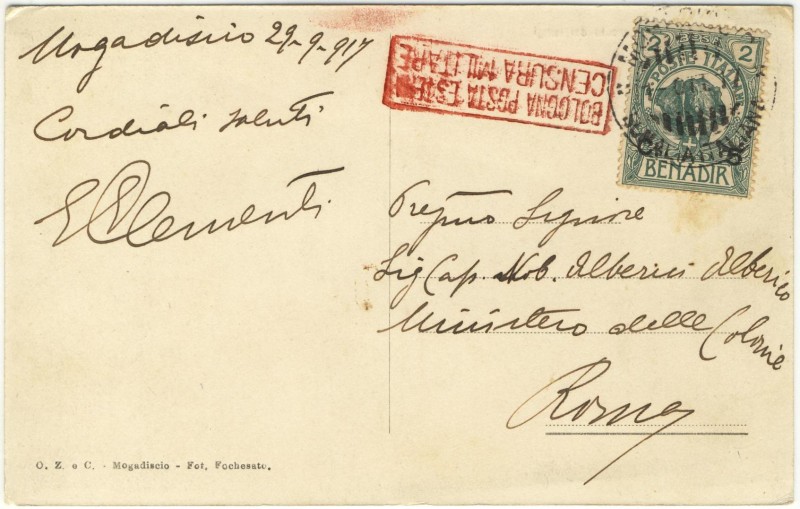 Mogadiscio 29-9-917
Cordiali saluti
E Clementi
BOLOGNA POSTA ESTERA
CENSURA MILITARE
2 2
POSTE ITALIANE
BENADIR
Pregmo Signore
Sig Cap. Nob. Alberici Alberico
Ministero delle Colonie
Roma
O. Z. e C. - Mogadiscio - Fot. Fochesato.